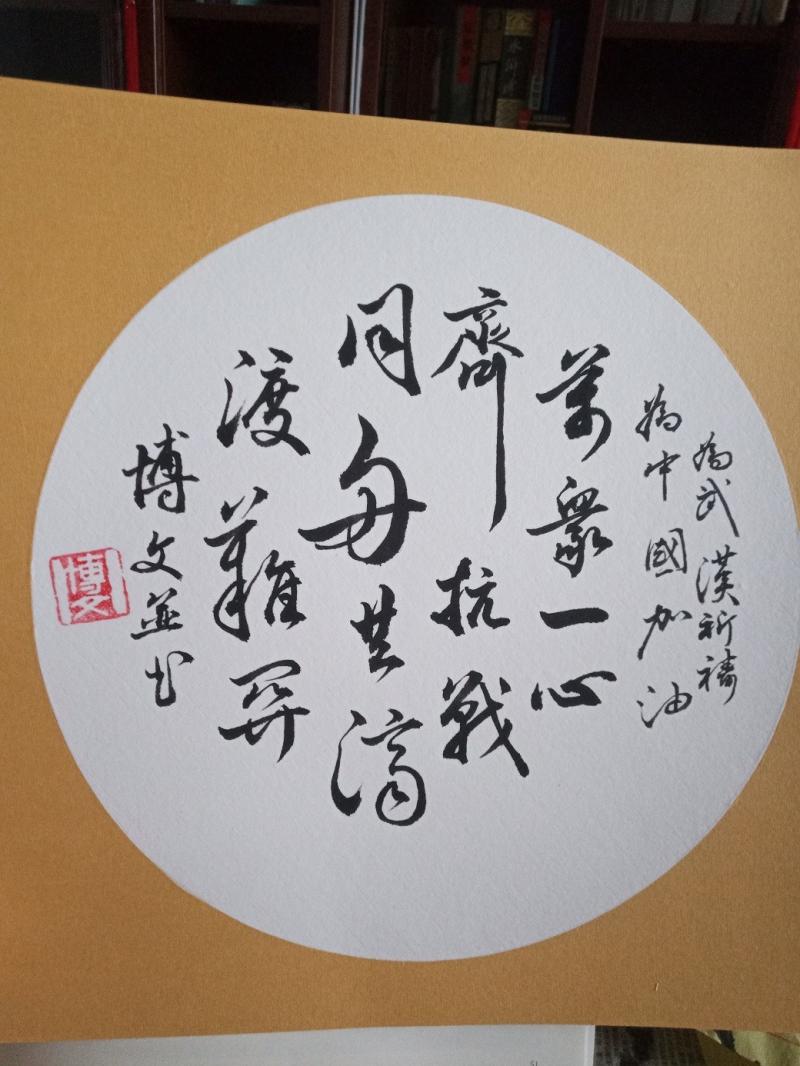 為武漢祈禱
為中國加油
萬衆一心
齊抗戰
同舟共濟
渡難關
博文並书
博文
51